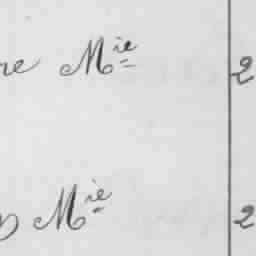 re Mie 2
Mie 2